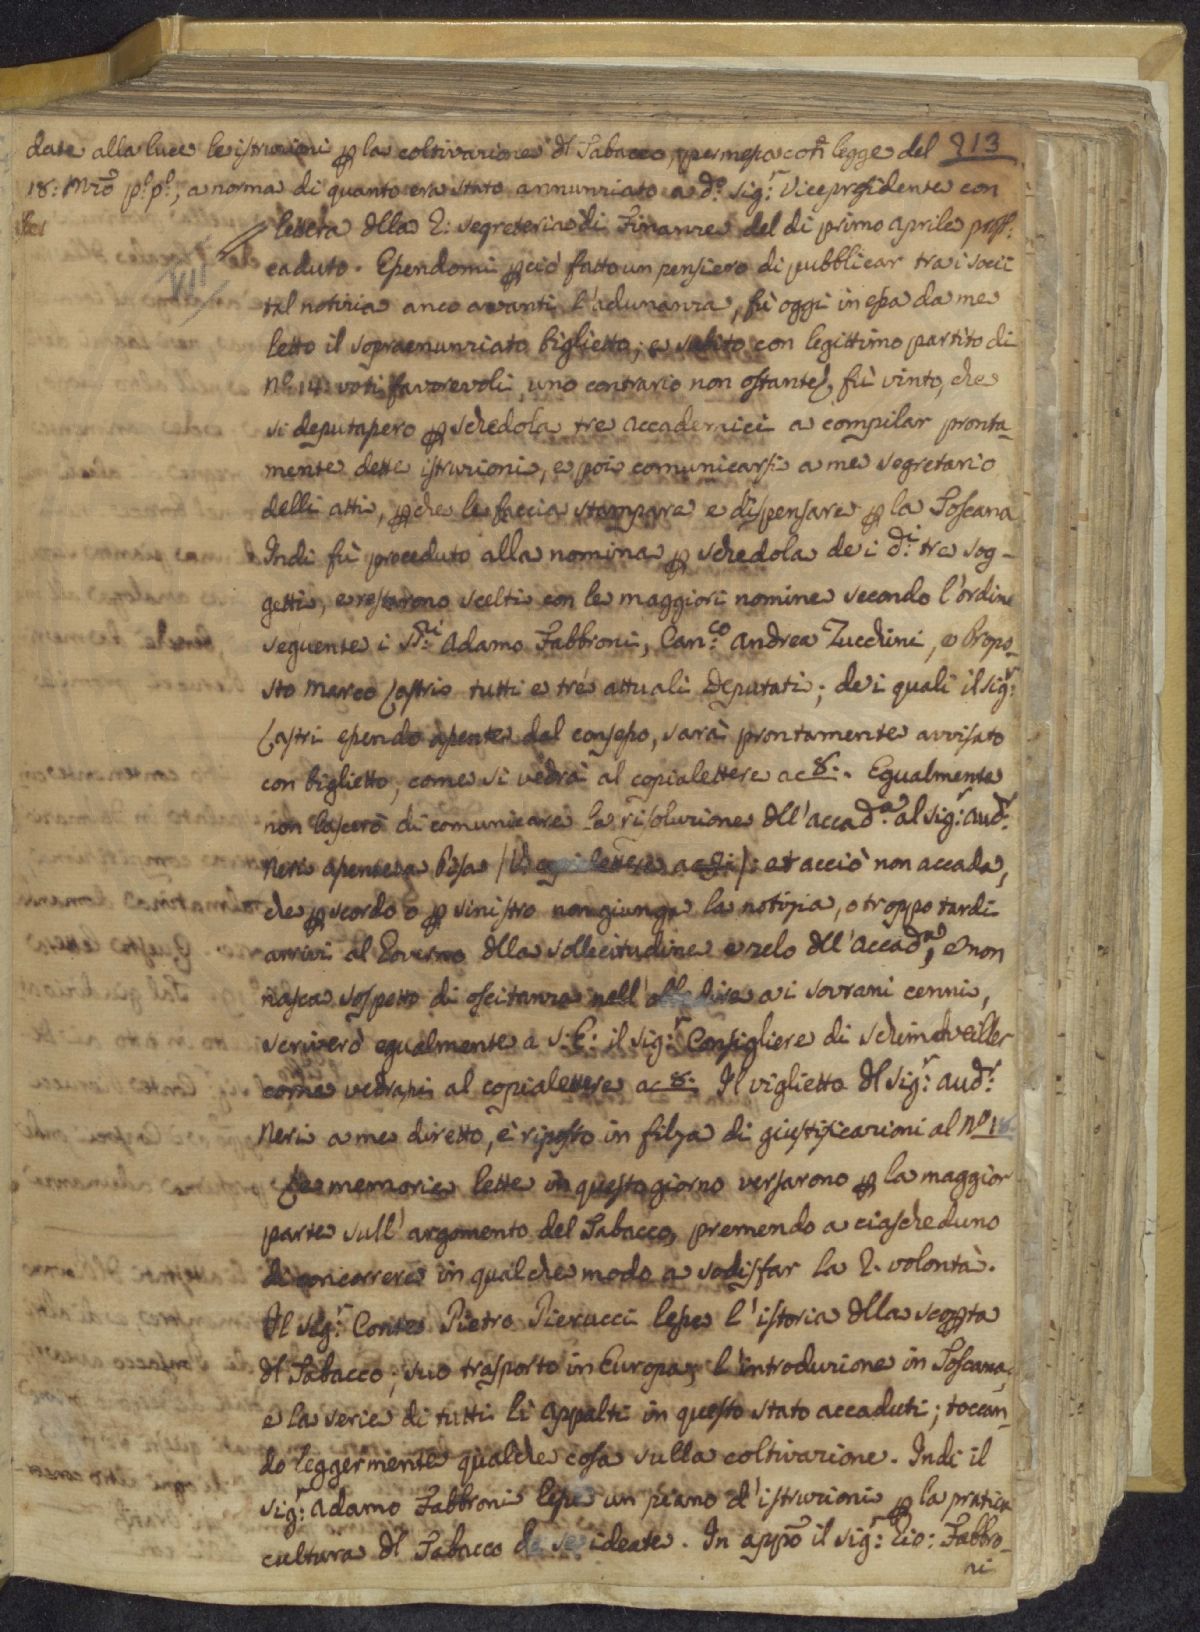 date alla luce le istruzioni p la coltivazione dl Tabacco, permessa cōn legge del 313
18: Mrzō p.º p.º, a norma di quanto era stato annunziato a d.º Sig.r Vicepresidente con
lettera dlla R: Segreteria di Finanze del dì primo aprile pross:
VIII
caduto. Essendomi pciò fatto un pensiero di pubblicar tra i socii
tal notizia anco avanti l'adunanza, fù oggi in essa da me
letto il sopraenunziato biglietto; e subito con legittimo partito di
Nº 14: voti favorevoli, uno contrario non ostante, fù vinto, che
si deputassero p schedola tre accademici a compilar pronta-
mente dette istruzioni, e poi comunicarsi a me segretario
delli atti, pche le faccia stampare e dispensare p la Toscana
Indi fù proceduto alla nomina p schedola dei d.i tre sog-
getti, e restarono scelti con le maggiori nomine secondo l'ordine
seguente i SS.ri Adamo Fabbroni, Can.co Andrea Zucchini, e Propo-
sto Marco Lastri tutti e tré attuali Deputati; dei quali il sig.r
Lastri essendo assente dal consesso, sarà prontamente avvisato
con biglietto, come si vedrà al copialettere a c 8:. Egualmente
non lascerò di comunicare la risoluzione dll'accad.a al Sig.r Aud.r
Neri assente a Pisa /: V: copialettere a c : / et acciò non accada,
che p scordo o p sinistro non giunga la notizia, o troppo tardi
arrivi al Governo dlla sollecitudine e zelo dll'accad.a, e non
nasca sospetto di oscitanza nell'obbedire ai sovrani cenni,
scriverò egualmente a S: E: il Sig.r Consigliere di Schmidveiller
come vedrassi al copialettere a c 8: Il viglietto dl Sig.r Aud.r
Neri a me diretto, è riposto in filza di giustificazioni al Nº 18
Le memorie lette in questo giorno versarono p la maggior
parte sull'argomento del Tabacco, premendo a ciascheduno
di concorrere in qualche modo a sodisfar la R. volontà.
Il Sig.r Conte Pietro Pierucci lesse l'istoria dlla scopta
dl Tabacco, suo trasporto in Europa, l'introduzione in Toscana,
e la serie di tutti li appalti in questo stato accaduti; toccan-
do leggermente qualche cosa sulla coltivazione. Indi il
Sig.r Adamo Fabbroni lesse un piano d'istruzioni p la pratica
cultura dl Tabacco da se ideate. In appō il sig.r Gio: Fabbro-
ni